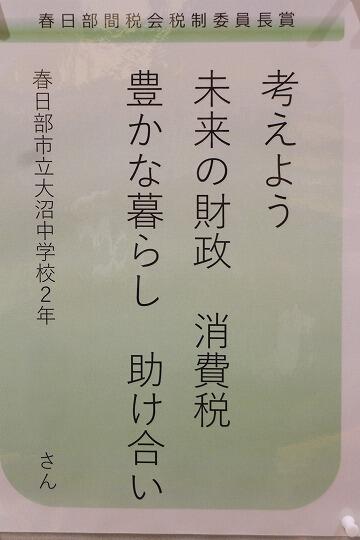 春日部間税会税制委員長賞
考えよう
未来の財政 消費税
豊かな暮らし 助け合い
春日部市立大沼中学校2年
さん